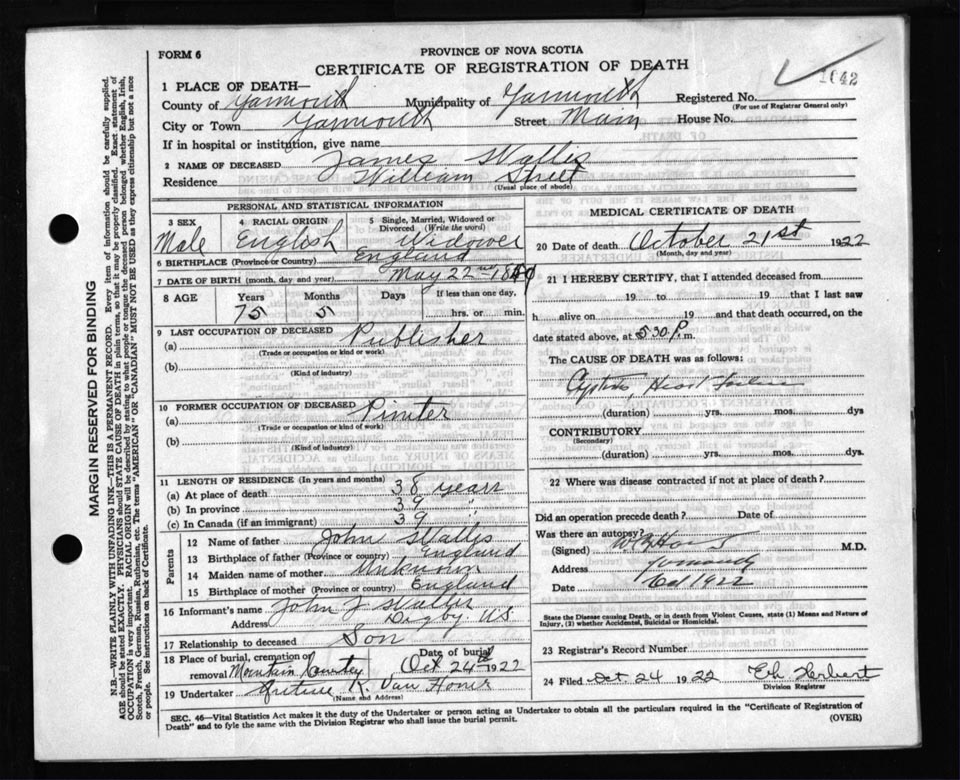 FORM 6
PROVINCE OF NOVA SCOTIA
CERTIFICATE OF REGISTRATION OF DEATH
1642
1 PLACE OF DEATH—
County of Yarmouth Municipality of Yarmouth Registered No.
(For use of Registrar General only)
City or Town Yarmouth Street Main House No.
If in hospital or institution, give name
2 NAME OF DECEASED James Wallis
Residence William Street
(Usual place of abode)
PERSONAL AND STATISTICAL INFORMATION
3 SEX Male
4 RACIAL ORIGIN English
5 Single, Married, Widowed or Divorced (Write the word) Widower
6 BIRTHPLACE (Province or Country) England
7 DATE OF BIRTH (month, day and year) May 22nd
8 AGE Years Months Days If less than one day,
75 5 hrs. or min.
9 LAST OCCUPATION OF DECEASED
(a) Publisher
(Trade or occupation or kind or work)
(b)
(Kind of industry)
10 FORMER OCCUPATION OF DECEASED
(a) Printer
(Trade or occupation or kind of work)
(b)
(Kind of industry)
11 LENGTH OF RESIDENCE (In years and months)
(a) At place of death 38 years
(b) In province 39 "
(c) In Canada (if an immigrant) 39
Parents
12 Name of father John Wallis
13 Birthplace of father (Province or country) England
14 Maiden name of mother Unknown
15 Birthplace of mother (Province or country) England
16 Informant's name John J Wallis
Address Digby N.S.
17 Relationship to deceased Son
18 Place of burial, cremation or removal Mountain Cemetery Date of burial Oct 24th 1922
19 Undertaker K. Van Horne
(Name and Address)
MEDICAL CERTIFICATE OF DEATH
20 Date of death October 21st 1922
(Month, day and year)
21 I HEREBY CERTIFY, that I attended deceased from
19 to 19 that I last saw
h alive on 19 and that death occurred, on the
date stated above, at 5.30 P. m.
The CAUSE OF DEATH was as follows:
Cystitis, Heart Failure
(duration) yrs. mos. dys
CONTRIBUTORY
(Secondary)
(duration) yrs. mos. dys.
22 Where was disease contracted if not at place of death?
Did an operation precede death? Date of
Was there an autopsy?
(Signed) M.D.
Address Yarmouth
Date Oct 1922
State the Disease causing Death, or in death from Violent Causes, state (1) Means and Nature of Injury, (2) whether Accidental, Suicidal or Homicidal.
23 Registrar's Record Number
24 Filed Oct. 24 1922 Herbert
Division Registrar
SEC. 46—Vital Statistics Act makes it the duty of the Undertaker or person acting as Undertaker to obtain all the particulars required in the "Certificate of Registration of
Death" and to fyle the same with the Division Registrar who shall issue the burial permit. (OVER)
MARGIN RESERVED FOR BINDING
N.B.—WRITE PLAINLY WITH UNFADING INK—THIS IS A PERMANENT RECORD. Every item of information should be carefully supplied.
AGE should be stated EXACTLY. PHYSICIANS should STATE CAUSE OF DEATH in plain terms, so that it may be properly classified. Exact statement of
OCCUPATION is very important. RACIAL ORIGIN will be described by stating to what people or tongue the deceased person belonged whether English, Irish,
Scotch, French, German, Russian, Ruthenian, etc. The terms "AMERICAN" OR "CANADIAN" MUST NOT BE USED as they express citizenship but not a race
or people. See instructions on back of Certificate.